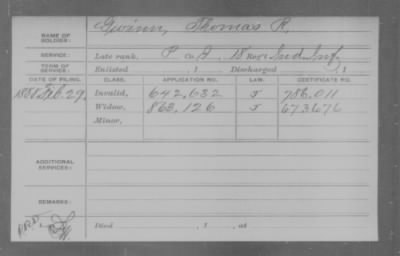 NAME OF SOLDIER: Gwinn, Thomas R,
SERVICE: Late rank, P Co I, 18 Reg't Ind Inf
TERM OF SERVICE: Enlisted , 1 Discharged , 1
DATE OF FILING. CLASS. APPLICATION NO. LAW. CERTIFICATE NO.
1888 Feb. 29, Invalid, 642,632 J 786,011
Widow, 863,126 J 673676
Minor,
ADDITIONAL SERVICES:
REMARKS:
Died , 1 , at